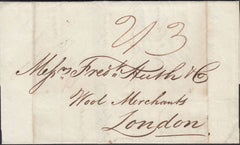 2/3
Messrs Fredk Huth & Co
Wool Merchants
London